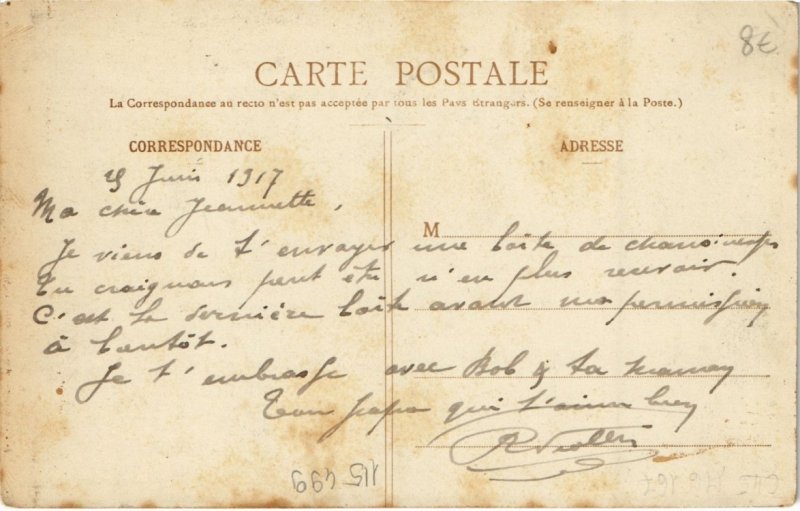 8€
CARTE POSTALE
La Correspondance au recto n'est pas acceptée par tous les Pays Etrangers. (Se renseigner à la Poste.)
CORRESPONDANCE
ADRESSE
Juin 1917
Ma chère Jeannette,
M
Je viens de t'envoyer une boîte de
Tu craignais peut être n'en plus recevoir.
C'est la dernière boîte avant ma permission
à bientôt.
Je t'embrasse avec Bob & ta maman
Ton papa qui t'aime bien
115 499